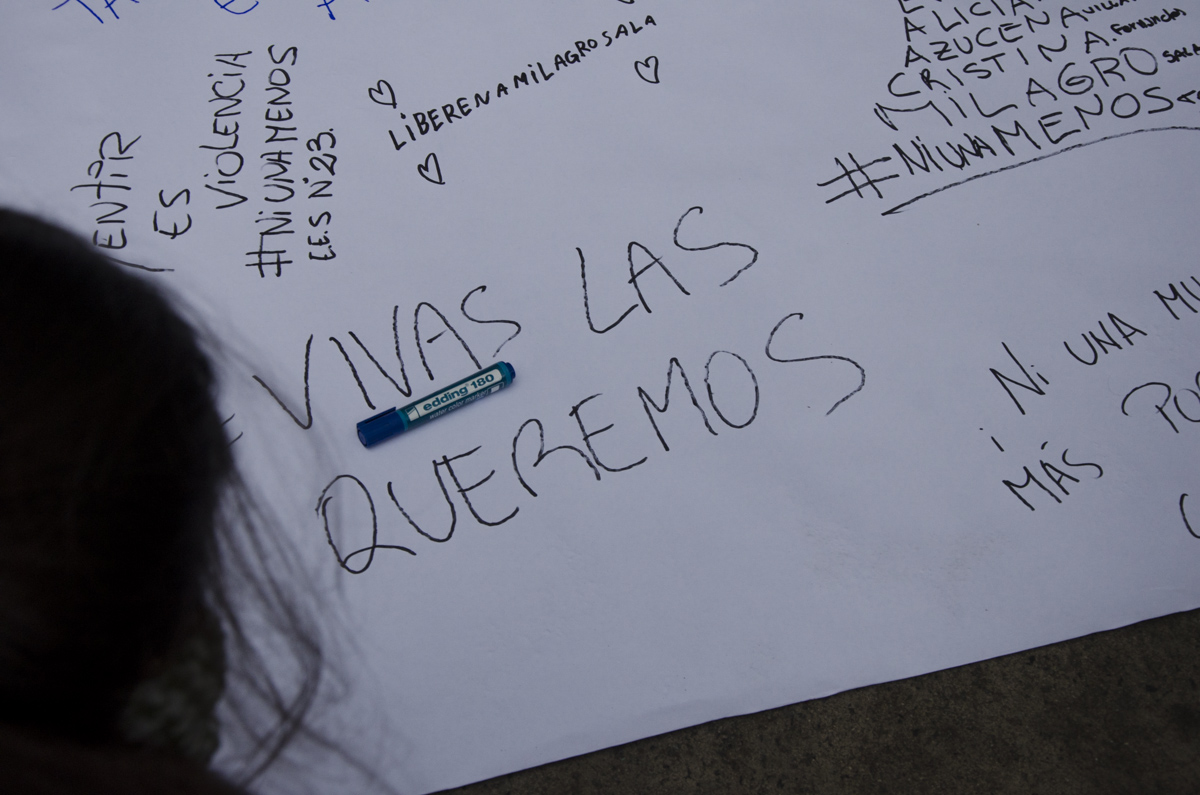 VIOLENCIA
ES
#NIUNAMENOS
E.E.S N°23.
LIBEREN A MILAGRO SALA
ALICIA
AZUCENA
CRISTINA. Fernandez
MILAGRO SALA
#NIUNAMENOS
#VIVAS LAS
QUEREMOS
edding 180
NI UNA
MÁS